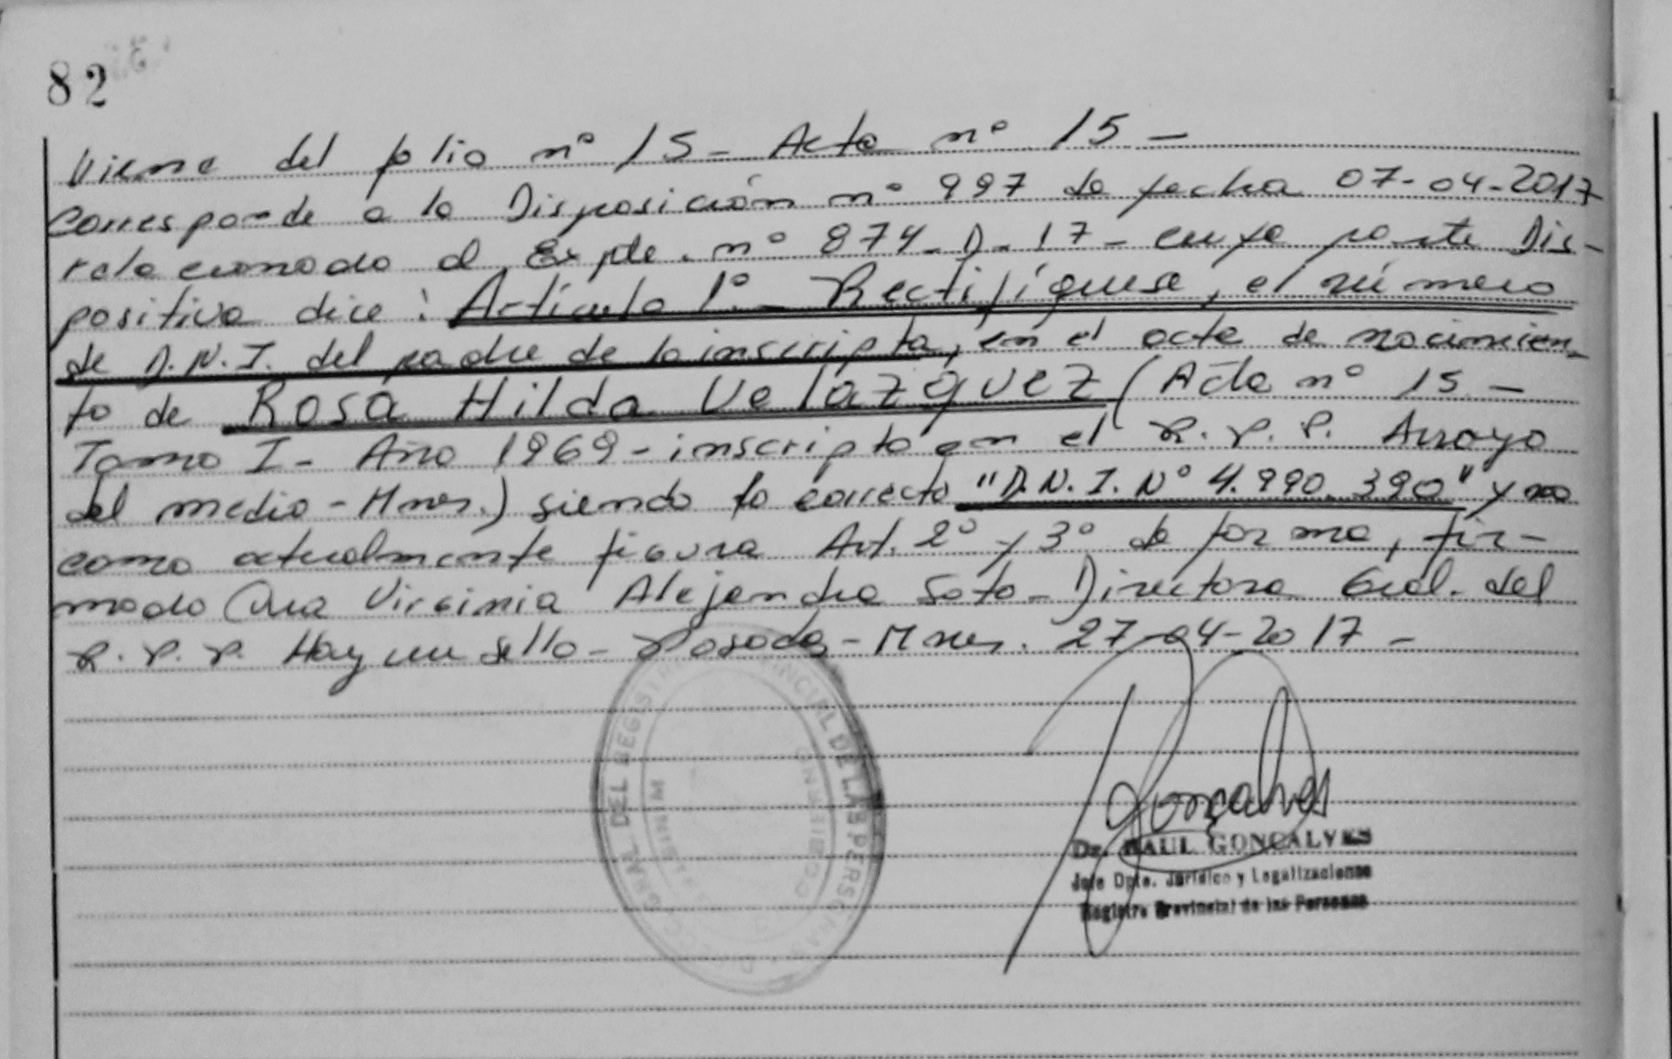 82
Viene del folio nº 15 - Acta nº 15 -
Corresponde a la Disposición nº 997 de fecha 07-04-2017
relacionado al Expte. nº 874-D-17 - cuya parte Dis-
positiva dice: Artículo 1º - Rectifíquese, el número
de D.N.I. del padre de la inscripta, en el acta de nacimien-
to de Rosa Hilda Velazquez (Acta nº 15 -
Tomo I - Año 1969 - inscripta en el R.P.P. Arroyo
del medio - Mnes.) siendo lo correcto "D.N.I. Nº 4.990.390" y no
como actualmente figura Art. 2º y 3º de forma, fir-
mado Dra Virginia Alejandra Soto - Directora Gral. del
R.P.P. Hay un sello - Posadas - Mnes. 27-04-2017 -
DEL REGISTRO PROVINCIAL DE LAS PERSONAS
Goncalves
Dr. RAUL GONCALVES
Jefe Dpto. Jurídico y Legalizaciones
Registro Provincial de las Personas